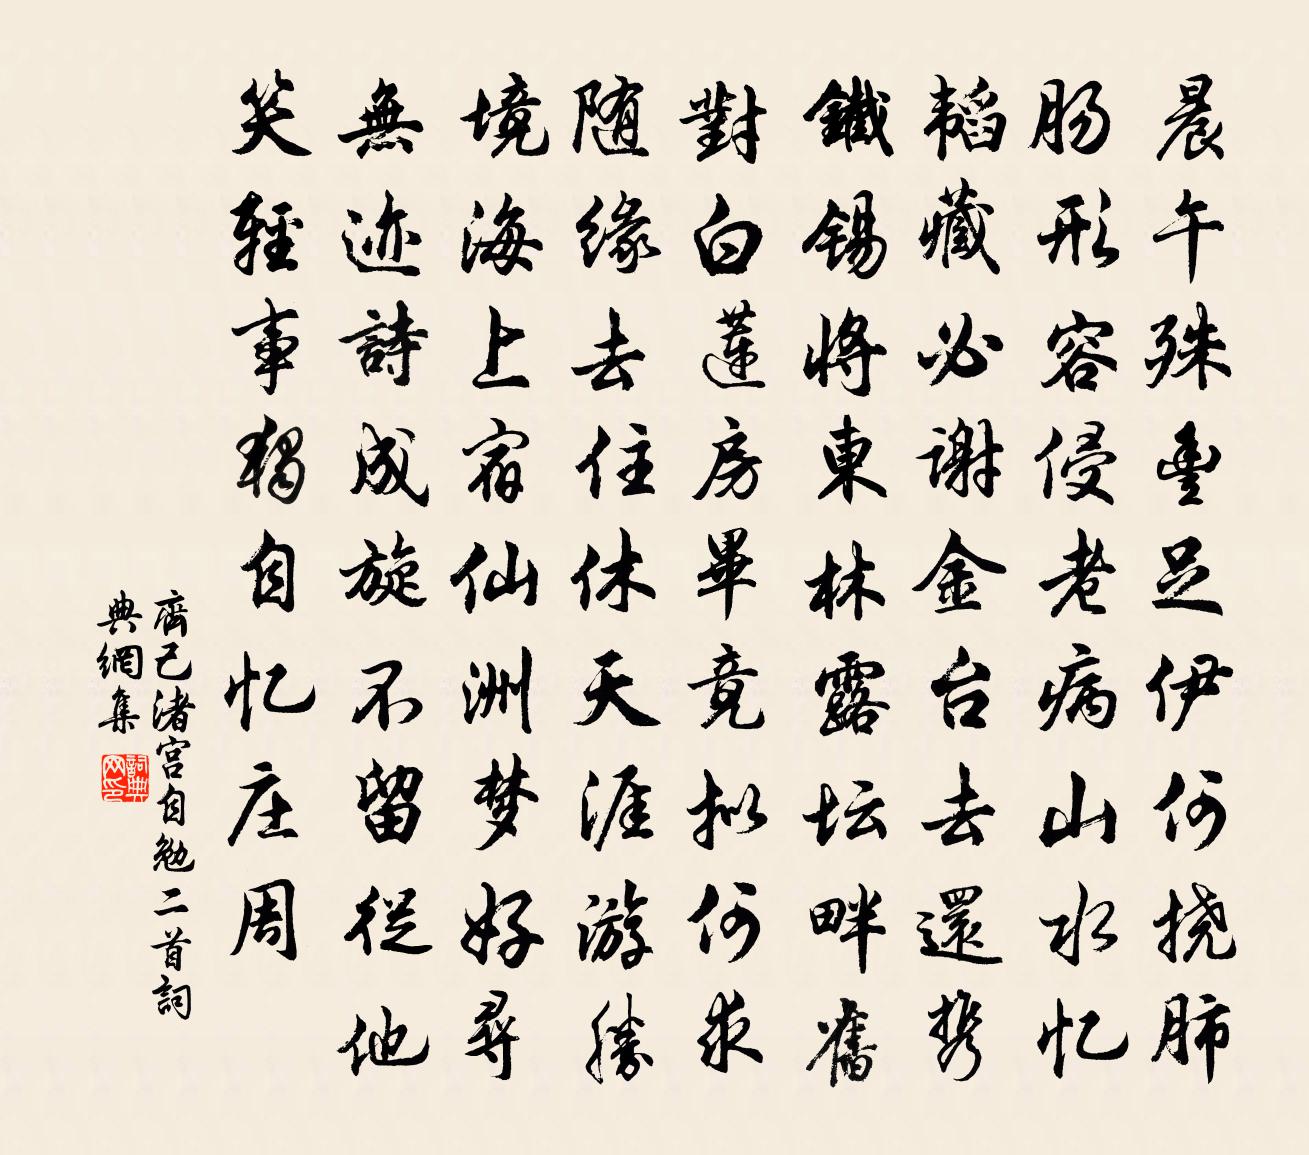 晨午殊豊足伊何撓肺
腸形容侵老病山水忆
韜藏必謝金台去還携
鐵锡將東林露坛畔舊
對白蓮房畢竟拟何求
随缘去住休天涯游勝
境海上宿仙洲梦好尋
無迹詩成旋不留從他
笑輕事獨自忆庄周
齊己渚宫自勉二首詞
典網集
詞典网印